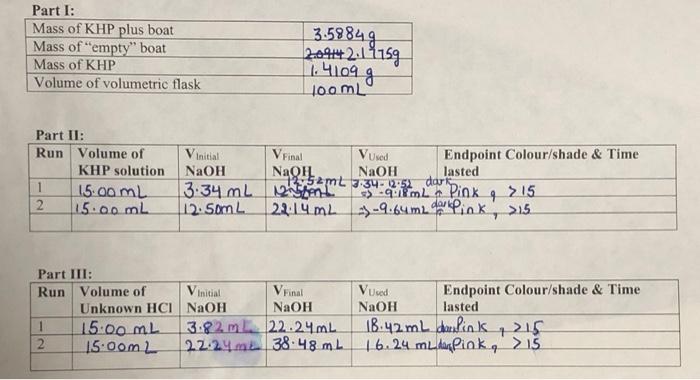 Part I:
Mass of KHP plus boat 3.5884g
Mass of "empty" boat 2.0914 2.1775g
Mass of KHP 1.4109 g
Volume of volumetric flask 100mL
Part II:
Run Volume of KHP solution VInitial NaOH VFinal NaOH VUsed NaOH Endpoint Colour/shade & Time lasted
1 15.00 mL 3.34 mL 12.52mL 3.34-12.52 => -9.18mL dark Pink, >15
2 15.00 mL 12.50mL 22.14 mL => -9.64mL dark Pink, >15
Part III:
Run Volume of Unknown HCl VInitial NaOH VFinal NaOH VUsed NaOH Endpoint Colour/shade & Time lasted
1 15.00 mL 3.82mL 22.24mL 18.42mL dark Pink, >15
2 15.00mL 22.24mL 38.48 mL 16.24 mL dark Pink, >15